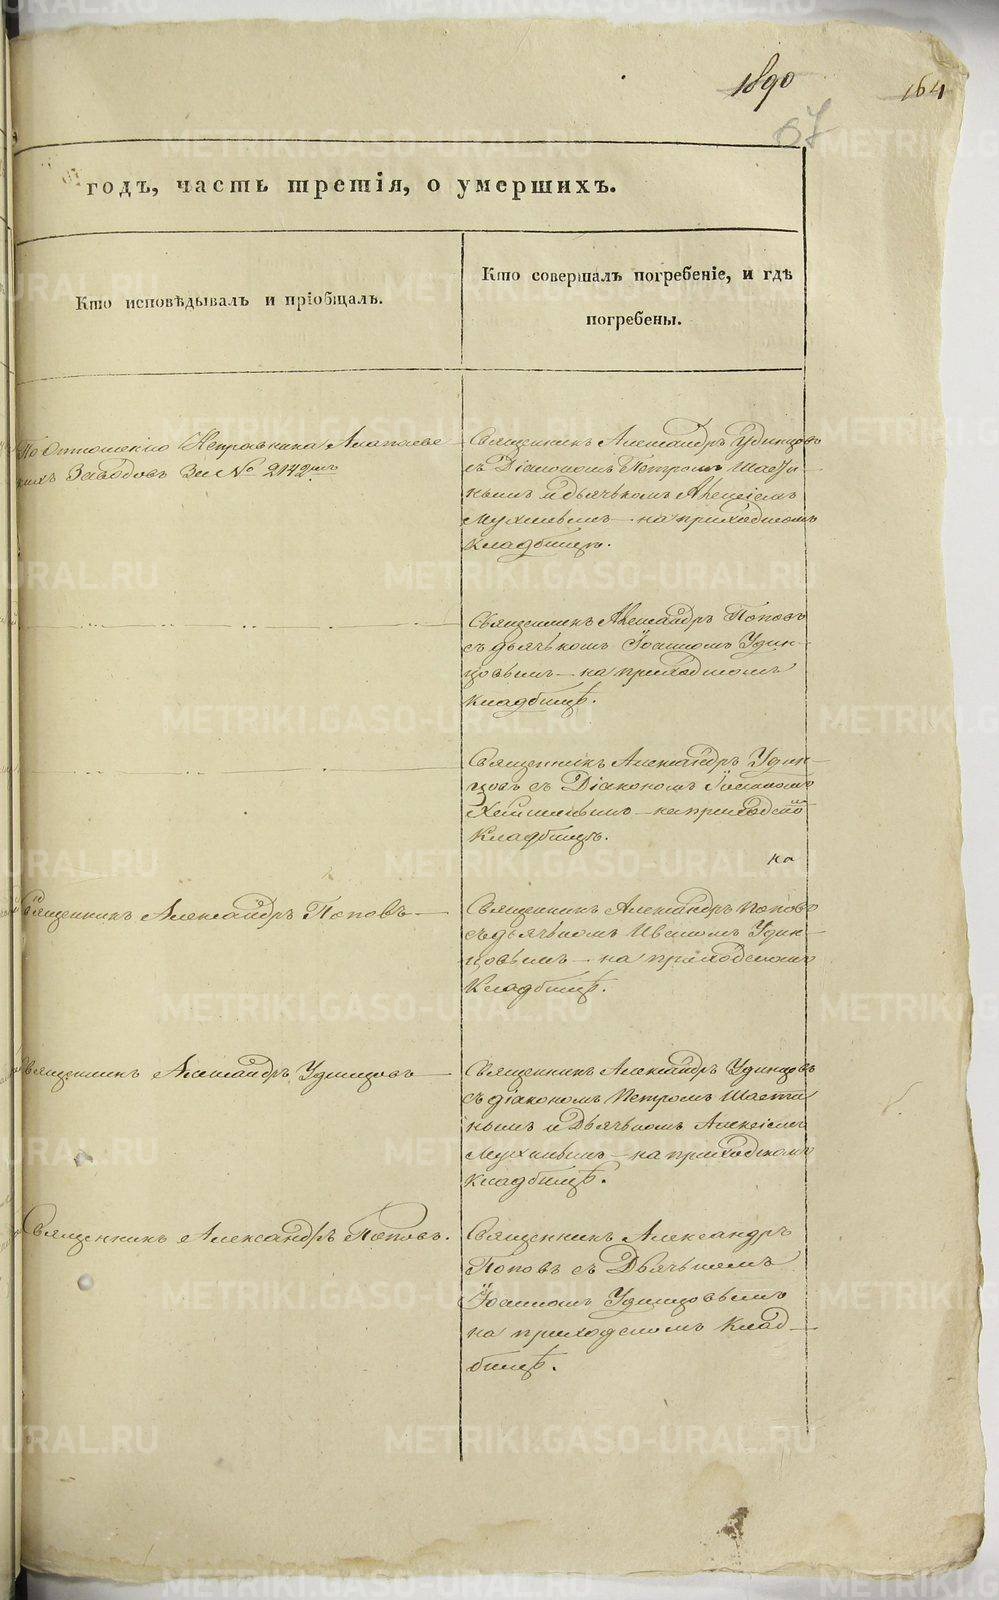 1890
164
67
годъ, часть третія, о умершихъ.
Кто исповѣдывалъ и пріобщалъ.
Кто совершалъ погребеніе, и гдѣ
погребены.
По Отношенію Исправника Алапаевс
кихъ Заводовъ За № 2142мъ
Священникъ Александръ Удинцовъ
съ Діакономъ Петромъ
нымъ и дьячкомъ Алексіемъ
на приходскомъ
Кладбищѣ.
Священникъ Александръ Поповъ
съ дьячкомъ Іоанномъ Удин-
цовымъ – на приходскомъ
Кладбищѣ.
Священникъ Александръ Удин-
цовъ съ Діакономъ Іоанномъ
на приходскомъ
Кладбищѣ.
на
Священникъ Александръ Поповъ
Священникъ Александръ Поповъ
съ дьячкомъ Иваномъ Удин-
цовымъ – на приходскомъ
Кладбищѣ.
Священникъ Александръ Удинцовъ
Священникъ Александръ Удинцовъ
съ діакономъ Петромъ
нымъ и Дьячкомъ Алексіемъ
на приходскомъ
Кладбищѣ.
Священникъ Александръ Поповъ.
Священникъ Александръ
Поповъ съ Дьячкомъ
Іоанномъ Удинцовымъ
на приходскомъ Клад-
бищѣ.
METRIKI.GASO-URAL.RU